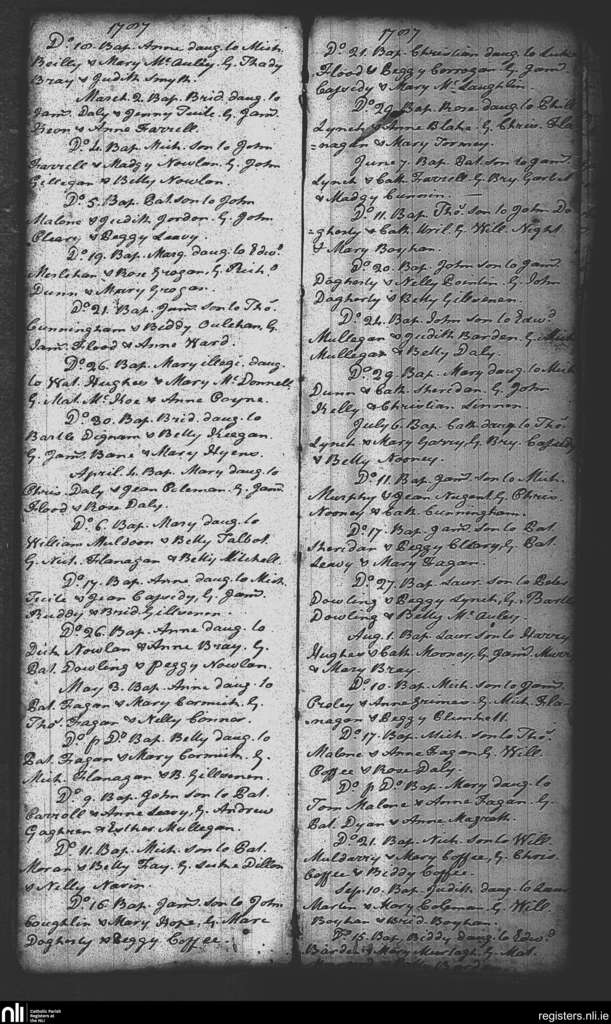 1787
Do. 18. Bap. Anne daug. to Mich.
Reilly & Mary McAuley. G. Thady
Bray & Judith Smyth.
March 2. Bap. Brid. daug. to
Jam. Daly & Jenny Tuite. G. Jam.
Keon & Anne Farrell.
Do. 4. Bap. Mich. son to John
Farrell & Madgy Nowlan. G. John
Gillegan & Betty Nowlan.
Do. 5. Bap. Pat son to John
Malone & Judith Jordon. G. John
Cleary & Peggy Leavy.
Do. 19. Bap. Marg. daug. to Edwd.
& Rose Grogan. G. Richd.
Dunn & Mary Grogan.
Do. 21. Bap. Jam. son to Thos.
Cunningham & Biddy. G.
Jam. Flood & Anne Ward.
Do. 26. Bap. Mary illegi. daug.
to Wat. Hughes & Mary McDonnell
G. Mat. McKoe & Anne Coyne.
Do. 30. Bap. Brid. daug. to
Bartle Dignam & Betty Keegan.
G. Jam. Bane & Mary Hyens.
April 4. Bap. Mary daug. to
Chris Daly & Jean Coleman. G. Jam.
Flood & Rose Daly.
Do. 6. Bap. Mary daug. to
William Muldoon & Betty Talbot
G. Nich. Flanagan & Betty Mitchell.
Do. 17. Bap. Anne daug. to Mich.
& Jean Capsidy. G. Jam.
Ruddy & Brid. Gillsenen.
Do. 26. Bap. Anne daug. to
Dick Nowlan & Anne Bray. G.
Pat. Dowling & Peggy Nowlan.
May 3. Bap. Anne daug. to
Pat. Fagan & Mary Cormick. G.
Thos. Fagan & Nelly Connor.
Do. p. Do. Bap. Betty daug. to
Pat. Fagan & Mary Cormick. G.
Mich. Flanagan & B. Gillsenen.
Do. 9. Bap. John son to Pat.
Carroll & Anne Leavy. G. Andrew
Gaghren & Esther Mullegan.
Do. 11. Bap. Mich. son to Pat.
Moran & Betty Fay. G. Luke Dillon
& Nelly Navin.
Do. 16. Bap. Jam. son to John
Coughlin & Mary Hope. G. Marc
Dogherty & Peggy Coffee.
1787
Do. 21. Bap. Christian daug. to Luke
Flood & Peggy Corrogan. G. Jam.
Capsidy & Mary McLaughlin.
Do. 29. Bap. Rose daug. to Phill
Lynch & Anne Blake. G. Chris. Fla
=nagan & Mary Tormey.
June 7. Bap. Pat son to Jam.
Lynch & Cath. Farrell. G. Bry. Corbet
& Madgy Cunnin.
Do. 11. Bap. Thos. son to John Do
=gherty & Cath. G. Will. Night
& Mary Boyhan.
Do. 20. Bap. John son to Jam.
Dogherty & Nelly. G. John
Dogherty & Betty Gillsenen.
Do. 24. Bap. John son to Edwd.
Mullegan & Judith Barden. G. Mich
Mullegan & Betty Daly.
Do. 29. Bap. Mary daug. to Mich
Dunn & Cath. Sheridan. G. John
Kelly & Christian Linnen.
July 6. Bap. Cath. daug. to Thos.
Lynch & Mary Garry. G. Bry. Capsidy
& Betty Nooney.
Do. 11. Bap. Jam. son to Mich.
Murphy & Jean Nugent. G. Chris.
Nooney & Cath. Cunningham.
Do. 17. Bap. Jam. son to Pat.
Sheridan & Peggy Cleary. G. Pat.
Leavy & Mary Fagan.
Do. 27. Bap. Laur. son to Peter
Dowling & Peggy Lynch. G. Bartle
Dowling & Betty McAuley.
Aug. 1. Bap. Laur. son to Harry
Hughes & Cath. Mooney. G. Jam. Murr
& Mary Bray
Do. 10. Bap. Mich. son to Jam.
Croley & Anne Grimes. G. Mich. Fla-
=nagan & Peggy Plunkett.
Do. 17. Bap. Mich. son to Thos.
Malone & Anne Fagan. G. Will.
Coffee & Rose Daly.
Do. p. Do. Bap. Mary daug. to
Tom Malone & Anne Fagan. G.
Pat. Dyan & Anne Magrath.
Do. 21. Bap. Nich. son to Will.
Muldarry & Mary Coffee. G. Chris.
Coffee & Biddy Coffee.
Sep. 10. Bap. Judith daug. to
Martin & Mary Coleman. G. Will.
Boyhan & Brid. Boyhan.
Do. 15. Bap. Biddy daug. to Edwd.
Barden & Mary Murtagh. G. Mat.
Barden
nli
Catholic Parish
Registers at
the NLI
registers.nli.ie